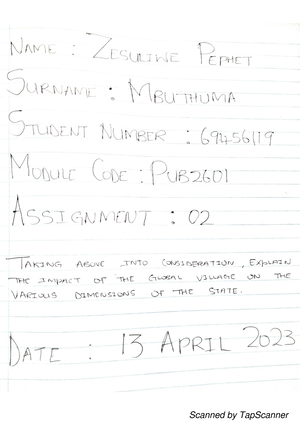 NAME : ZESULIWE PEPHET
SURNAME : MBUTHUMA
STUDENT NUMBER : 69456119
MODULE CODE : PUB2601
ASSIGNMENT : 02
TAKING ABOVE INTO CONSIDERATION, EXPLAIN
THE IMPACT OF THE GLOBAL VILLAGE ON THE
VARIOUS DIMENSIONS OF THE STATE.
DATE : 13 APRIL 2023
Scanned by TapScanner